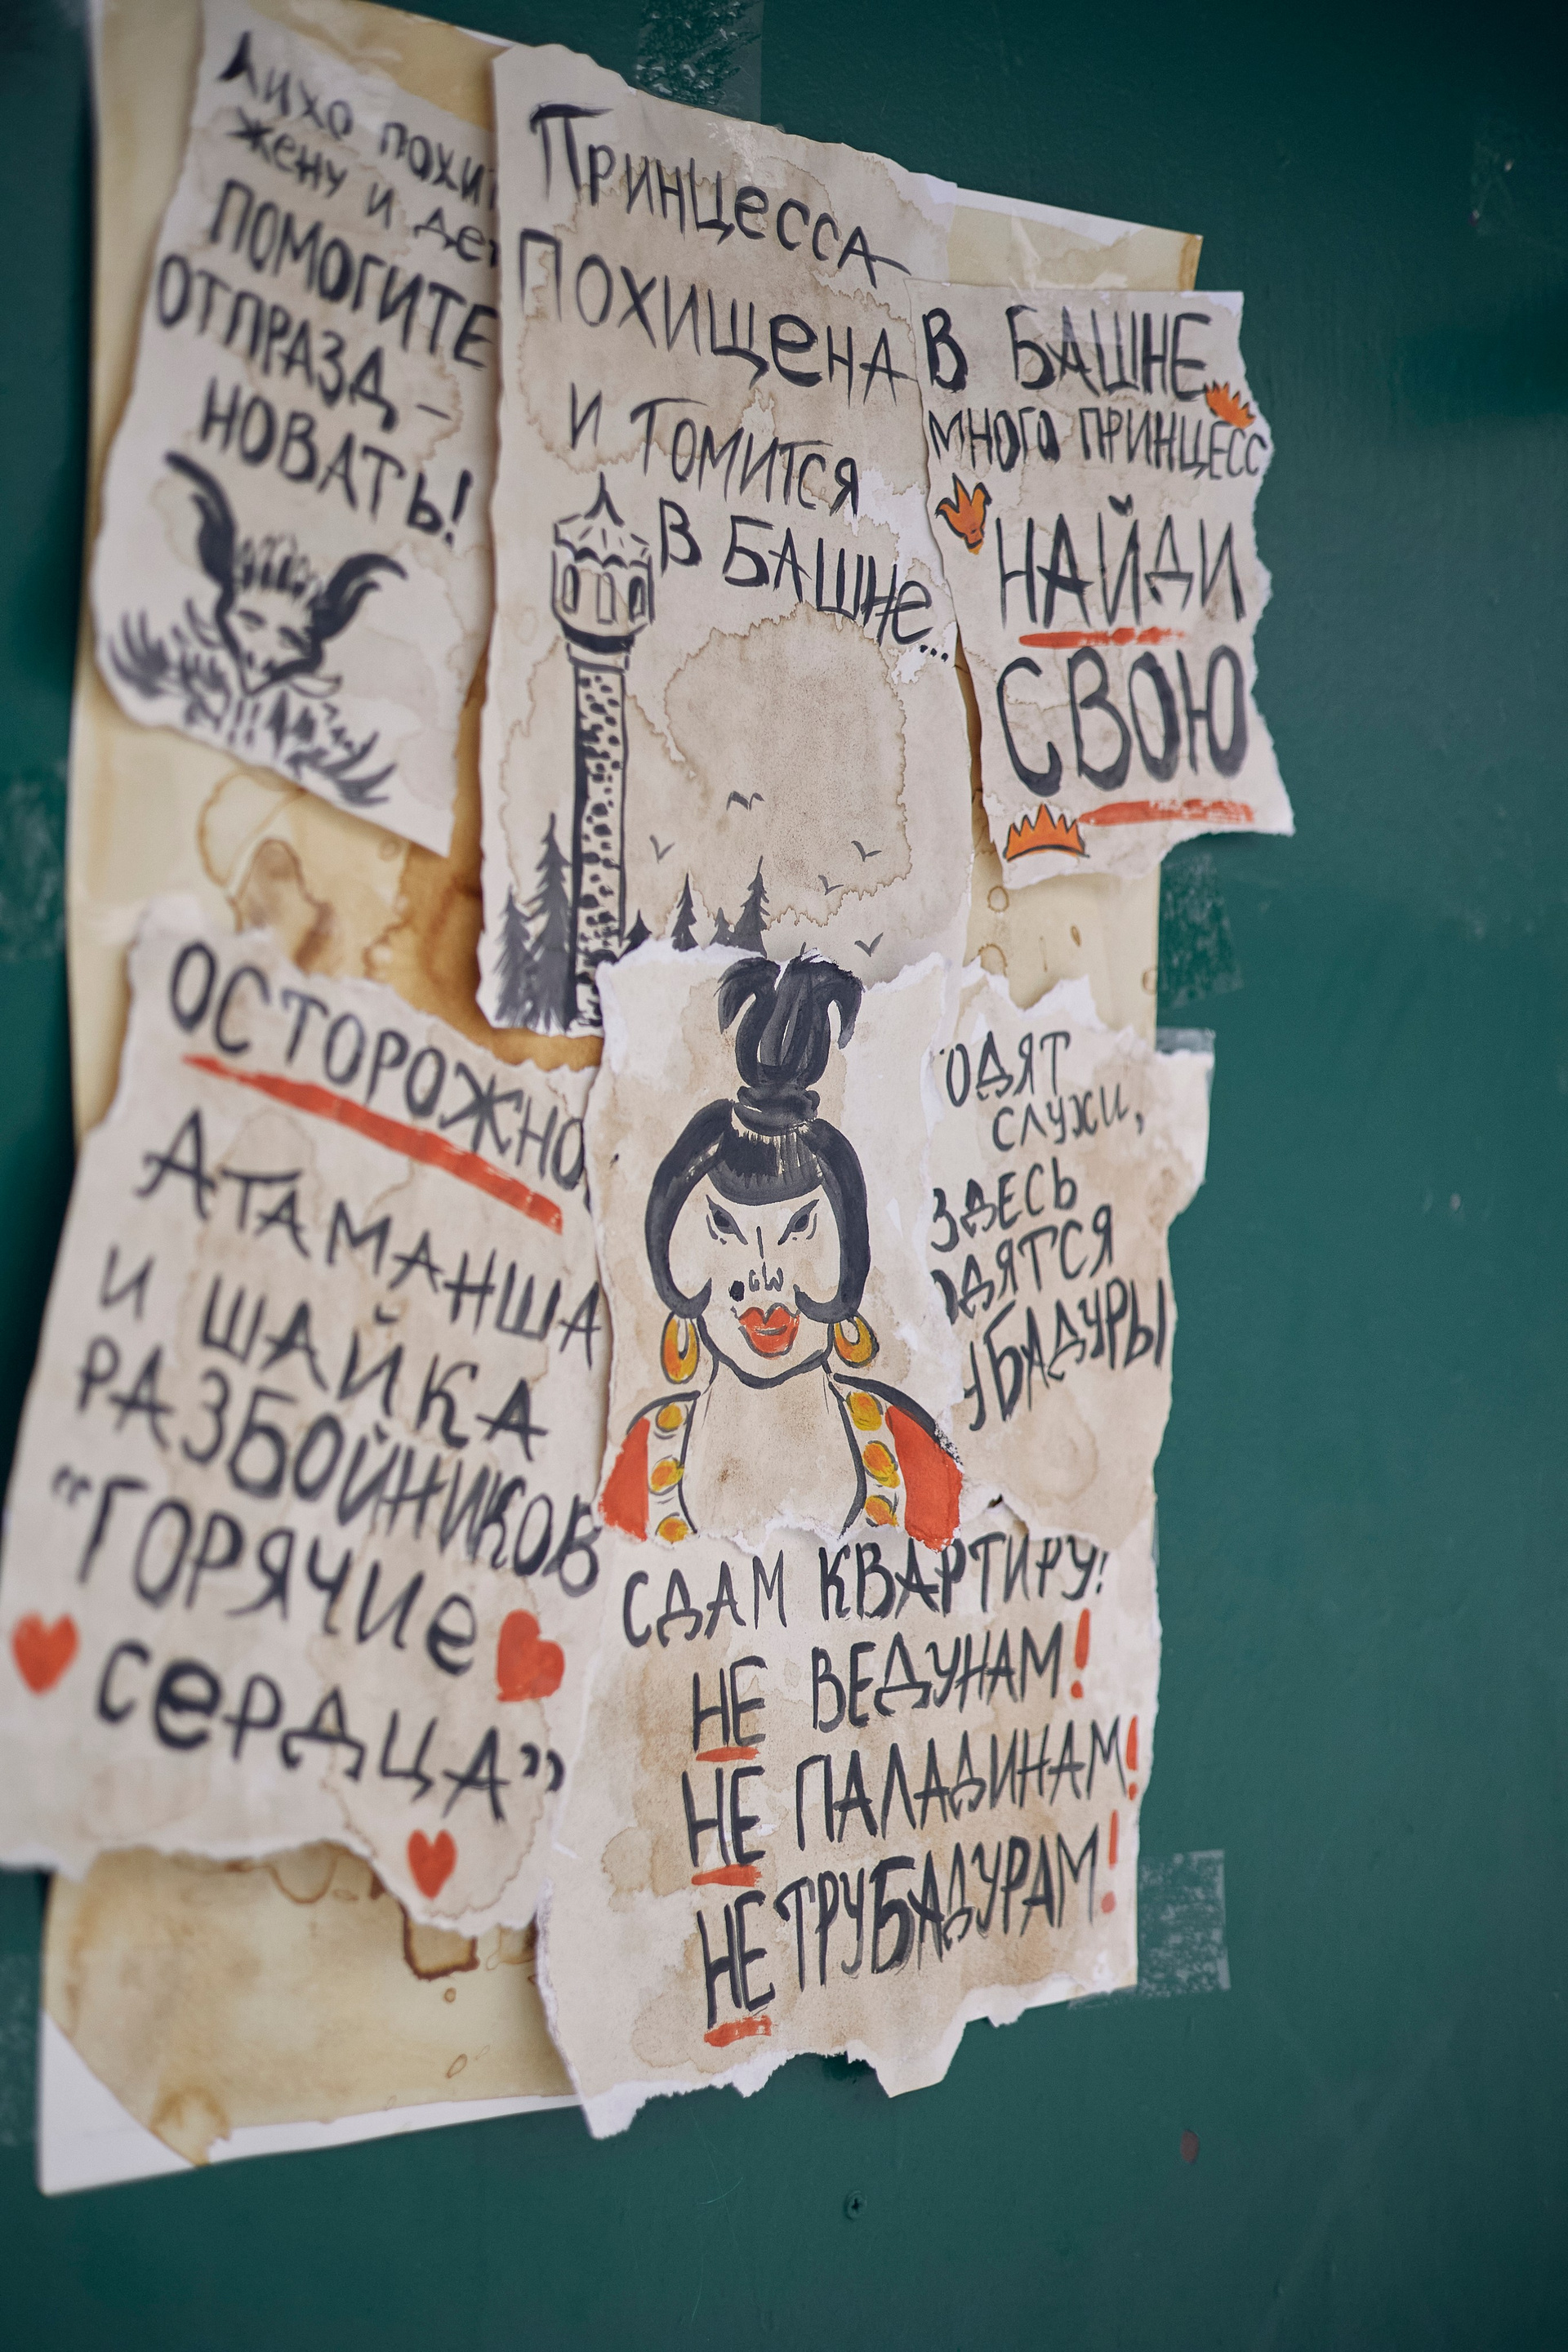 Лихо похи
жену и де
ПОМОГИТЕ
ОТПРАЗД-
НОВАТЬ!
Принцесса
Похищена
и томится
в башне...
В БАШНЕ
МНОГО ПРИНЦЕСС
НАЙДИ
СВОЮ
ОСТОРОЖНО
АТАМАНША
И ШАЙКА
РАЗБОЙНИКОВ
"ГОРЯЧИе
сеРДЦА"
ОДЯТ
СЛУХИ,
ЗДЕСЬ
ОДЯТСЯ
УБАДУРЫ
СДАМ КВАРТИРУ!
НЕ ВЕДУНАМ!
НЕ ПАЛАДИНАМ!
НЕ ТРУБАДУРАМ!